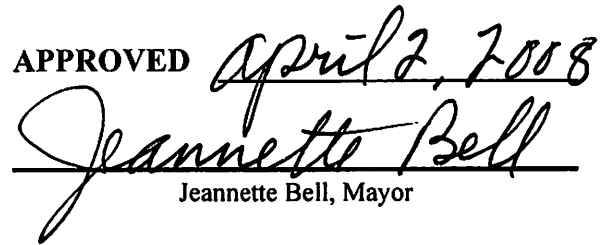 APPROVED April 2, 2008
Jeannette Bell
Jeannette Bell, Mayor